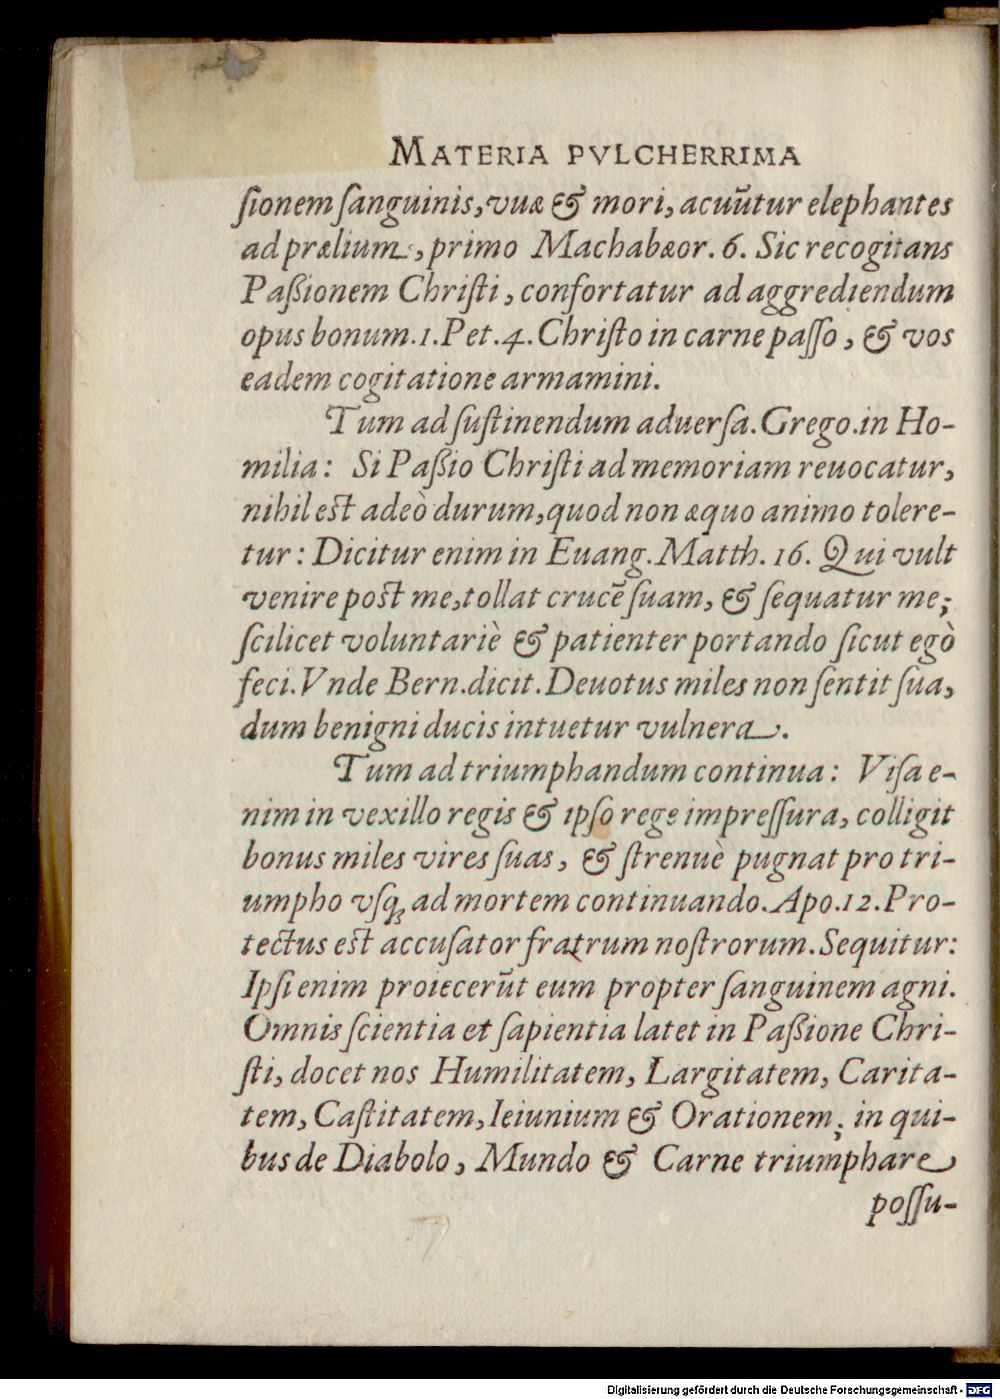 MATERIA PVLCHERRIMA
ſionem ſanguinis, vuæ & mori, acuũtur elephantes
ad prælium, primo Machabæor. 6. Sic recogitans
Paßionem Chriſti, confortatur ad aggrediendum
opus bonum. 1. Pet. 4. Chriſto in carne paſſo, & vos
eadem cogitatione armamini.
Tum ad ſuſtinendum aduerſa. Grego. in Ho-
milia: Si Paßio Chriſti ad memoriam reuocatur,
nihil eſt adeò durum, quod non æquo animo tolere-
tur: Dicitur enim in Euang. Matth. 16. Qui vult
venire poſt me, tollat crucẽ ſuam, & ſequatur me;
ſcilicet voluntariè & patienter portando ſicut egò
feci. Vnde Bern. dicit. Deuotus miles non ſentit ſua,
dum benigni ducis intuetur vulnera.
Tum ad triumphandum continua: Viſa e-
nim in vexillo regis & ipſo rege impreſſura, colligit
bonus miles vires ſuas, & ſtrenuè pugnat pro tri-
umpho vſq; ad mortem continuando. Apo. 12. Pro-
tectus eſt accuſator fratrum noſtrorum. Sequitur:
Ipſi enim proiecerũt eum propter ſanguinem agni.
Omnis ſcientia et ſapientia latet in Paßione Chri-
ſti, docet nos Humilitatem, Largitatem, Carita-
tem, Caſtitatem, Ieiunium & Orationem; in qui-
bus de Diabolo, Mundo & Carne triumphare
poſſu-
Digitalisierung gefördert durch die Deutsche Forschungsgemeinschaft - DFG